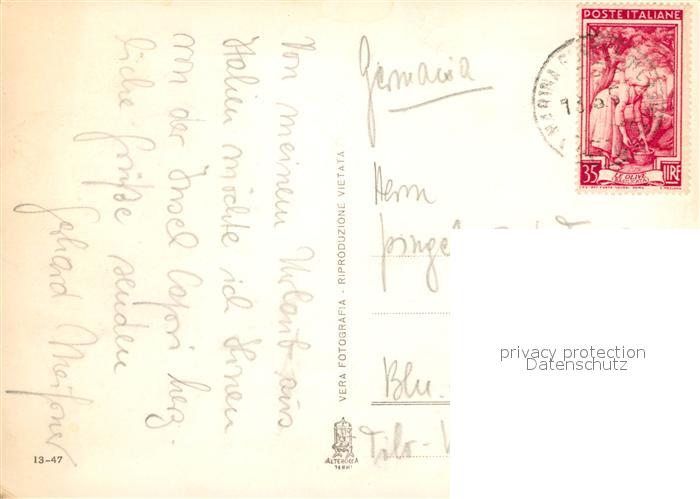 Von meinem Urlaub aus
Italien möchte ich Ihnen
von der Insel Capri herz-
liche Grüße senden
Gerhard Meißner
13-47
VERA FOTOGRAFIA - RIPRODUZIONE VIETATA
ALTEROCCA
TERNI
Germania
Herrn
POSTE ITALIANE
35 LIRE
LE OLIVE
MARINA
privacy protection
Datenschutz